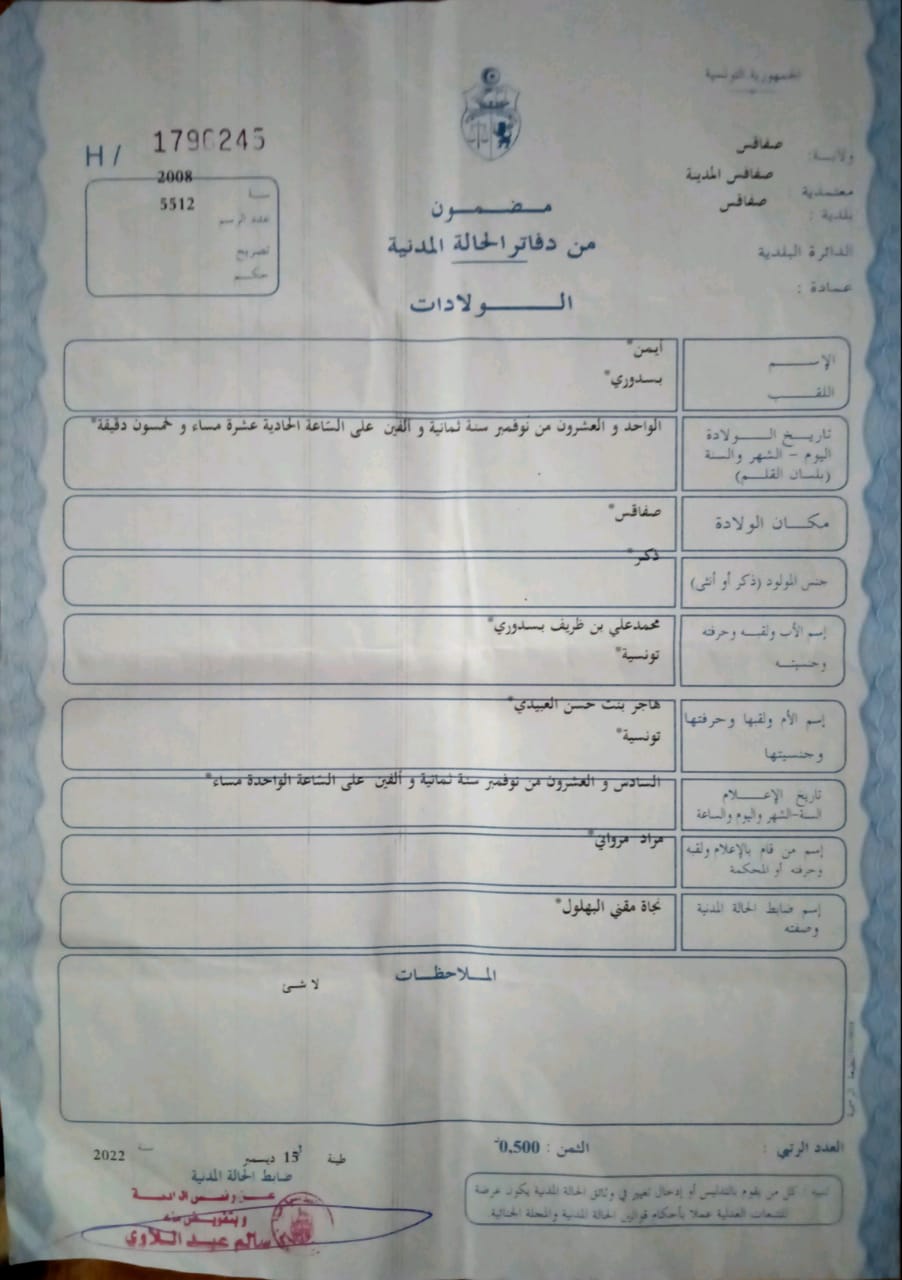 الجمهورية التونسية
ولاية: صفاقس
معتمدية : صفاقس المدينة
بلدية : صفاقس
الدائرة البلدية
عمادة :
H / 1796245
سنة 2008
عدد الرسم 5512
تصريح
حكم
مضمون
من دفاتر الحالة المدنية
الولادات
الإسم أيمن*
اللقب بسدوري*
تاريخ الولادة
اليوم - الشهر والسنة
(بلسان القلم)
الواحد و العشرون من نوفمبر سنة ثمانية و ألفين على الساعة الحادية عشرة مساء و خمسون دقيقة*
مكان الولادة صفاقس*
جنس المولود (ذكر أو أنثى) ذكر*
إسم الأب ولقبه وحرفته محمدعلي بن ظريف بسدوري*
وجنسيته تونسية*
إسم الأم ولقبها وحرفتها هاجر بنت حسن العبيدي*
وجنسيتها تونسية*
تاريخ الإعلام
السنة-الشهر واليوم والساعة
السادس و العشرون من نوفمبر سنة ثمانية و ألفين على الساعة الواحدة مساء*
إسم من قام بالإعلام ولقبه
وحرفته أو المحكمة
مراد مرواني*
إسم ضابط الحالة المدنية
وصفته
نجاة مقني البهلول*
الملاحظات
لا شئ
العدد الرتبي :
الثمن : 0,500
15 ديسمبر سنة 2022
ضابط الحالة المدنية
عن رئيس
وبتفويض منه
سالم عبد اللاوي
تنبيه : كل من يقوم بالتدليس أو إدخال تغيير في وثائق الحالة المدنية يكون عرضة
للتتبعات العدلية عملا بأحكام قوانين الحالة المدنية والمجلة الجنائية